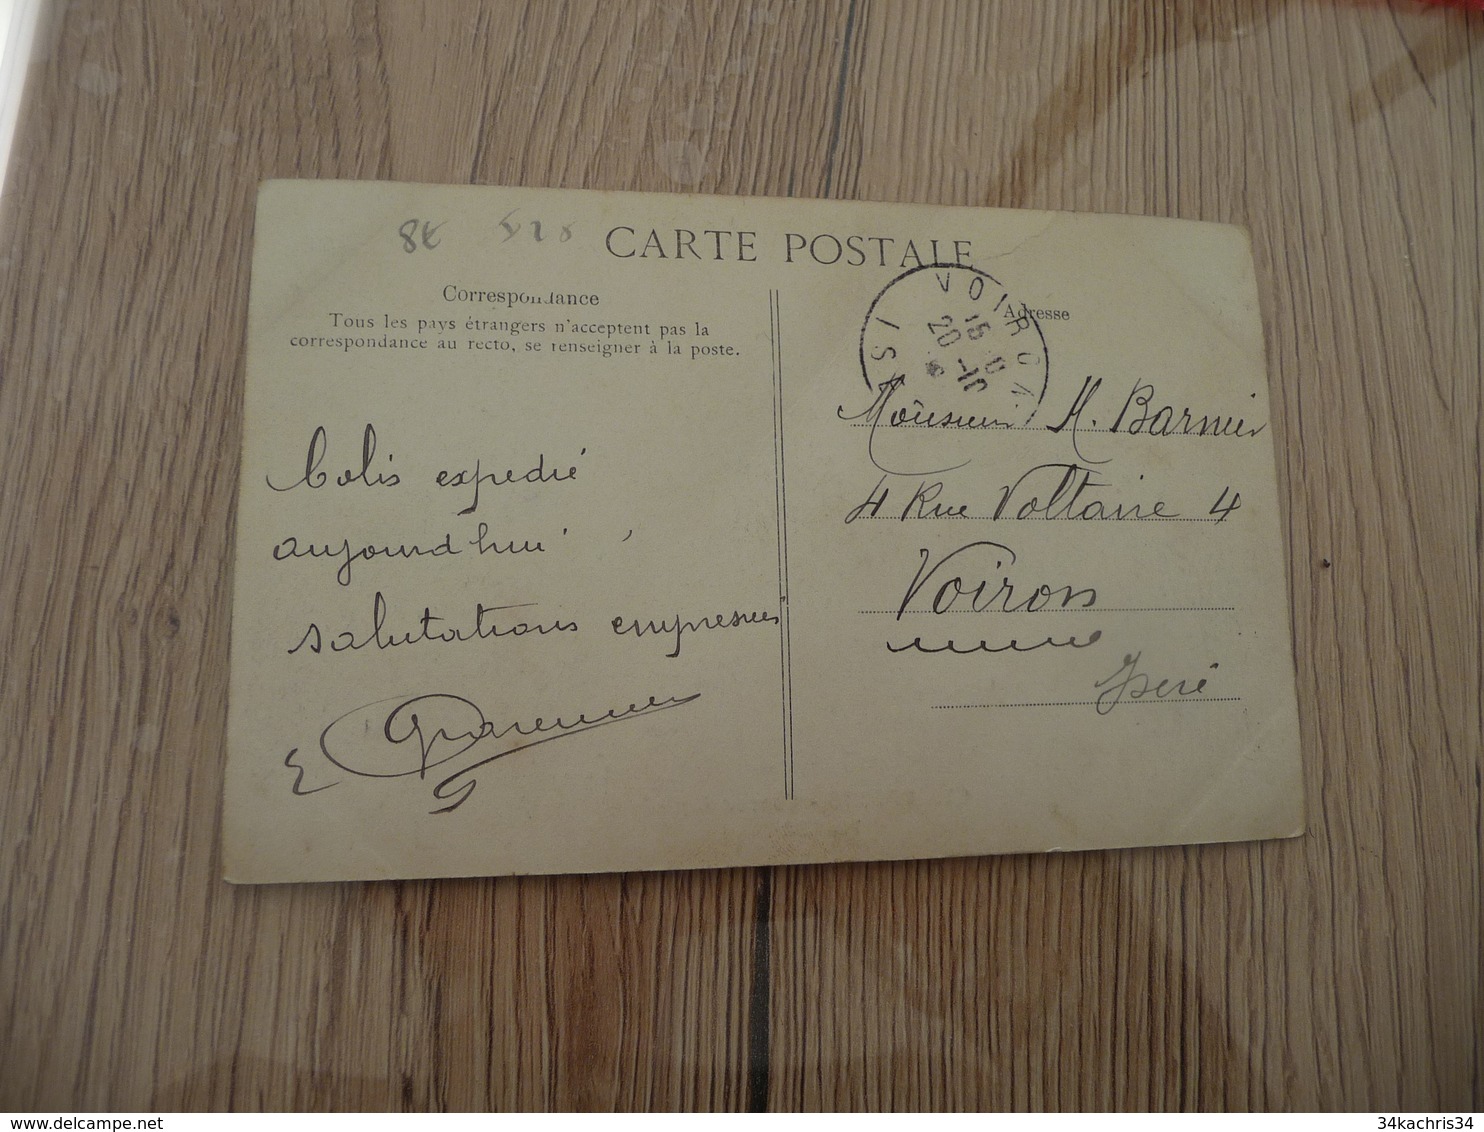 8€
CARTE POSTALE
Correspondance
Tous les pays étrangers n'acceptent pas la
correspondance au recto, se renseigner à la poste.
Adresse
VOIRON
20
IS
Colis expedié
aujourd'hui
salutations empressées
Monsieur H. Barnier
4 Rue Voltaire 4
Voiron
Isère
34kachris34